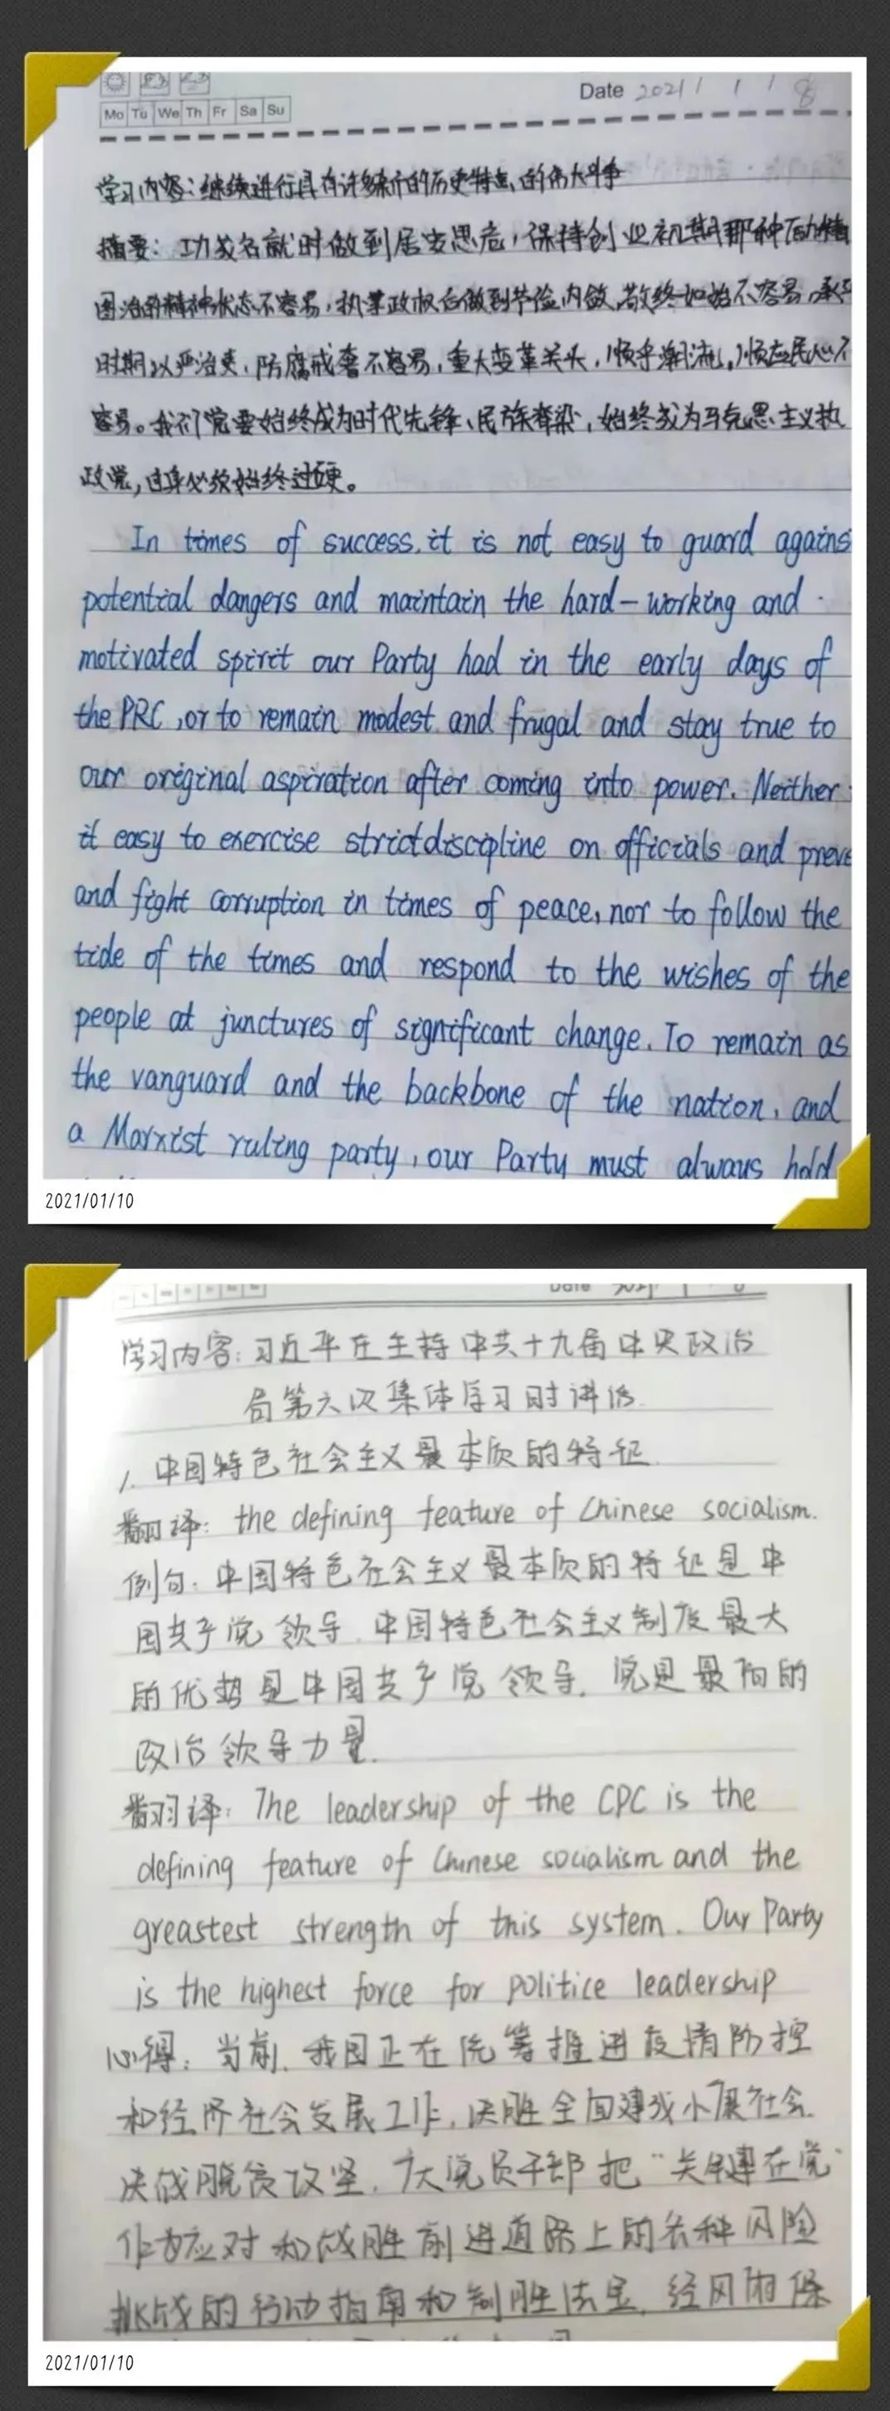 Mo Tu We Th Fr Sa Su
Date 2021 / 1 / 8
学习内容：继续进行具有许多新的历史特点的伟大斗争
摘要：功成名就时做到居安思危，保持创业初期那种励精
图治的精神状态不容易，执掌政权后做到节俭内敛、敬终如始不容易，承平
时期以严治吏、防腐戒奢不容易，重大变革关头，顺乎潮流，顺应民心不
容易。我们党要始终成为时代先锋、民族脊梁，始终成为马克思主义执
政党，自身必须始终过硬。
In times of success, it is not easy to guard agains
potential dangers and maintain the hard-working and
motivated spirit our Party had in the early days of
the PRC, or to remain modest and frugal and stay true to
our original aspiration after coming into power. Neither
it easy to exercise strict discipline on officials and preve
and fight corruption in times of peace, nor to follow the
tide of the times and respond to the wishes of the
people at junctures of significant change. To remain as
the vanguard and the backbone of the nation, and
a Marxist ruling party, our Party must always hold
2021/01/10
Date 2021 1 8
学习内容：习近平在主持中共十九届中央政治
局第六次集体学习时讲话.
1. 中国特色社会主义最本质的特征
翻译: the defining feature of Chinese socialism.
例句：中国特色社会主义最本质的特征是中
国共产党领导，中国特色社会主义制度最大
的优势是中国共产党领导，党是最高的
政治领导力量.
翻译: The leadership of the CPC is the
defining feature of Chinese socialism and the
greastest strength of this system. Our Party
is the highest force for politice leadership
心得：当前，我国正在统筹推进疫情防控
和经济社会发展工作，决胜全面建成小康社会.
决战脱贫攻坚，广大党员干部把“关键在党”
作为应对和战胜前进道路上的各种风险
挑战的行动指南和制胜法宝，经风雨保
2021/01/10